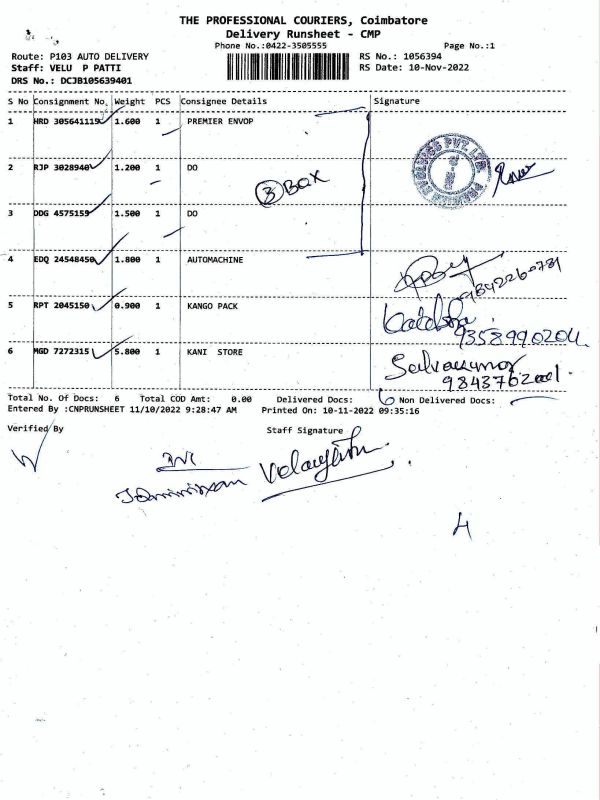 THE PROFESSIONAL COURIERS, Coimbatore
Delivery Runsheet - CMP
Phone No.:0422-3505555 Page No.:1
Route: P103 AUTO DELIVERY RS No.: 1056394
Staff: VELU P PATTI RS Date: 10-Nov-2022
DRS No.: DCJB105639401
S No Consignment No. Weight PCS Consignee Details Signature
1 HRD 305641119 1.600 1 PREMIER ENVOP
2 RJP 3028940 1.200 1 DO
3 BOX
3 DDG 4575159 1.500 1 DO
4 EDQ 24548450 1.800 1 AUTOMACHINE
9842260781
5 RPT 2045150 0.900 1 KANGO PACK
9358990204
6 MGD 7272315 5.800 1 KANI STORE
Selvakumar
Total No. Of Docs: 6 Total COD Amt: 0.00 Delivered Docs: 6 Non Delivered Docs:
Entered By :CNPRUNSHEET 11/10/2022 9:28:47 AM Printed On: 10-11-2022 09:35:16
Verified By Staff Signature